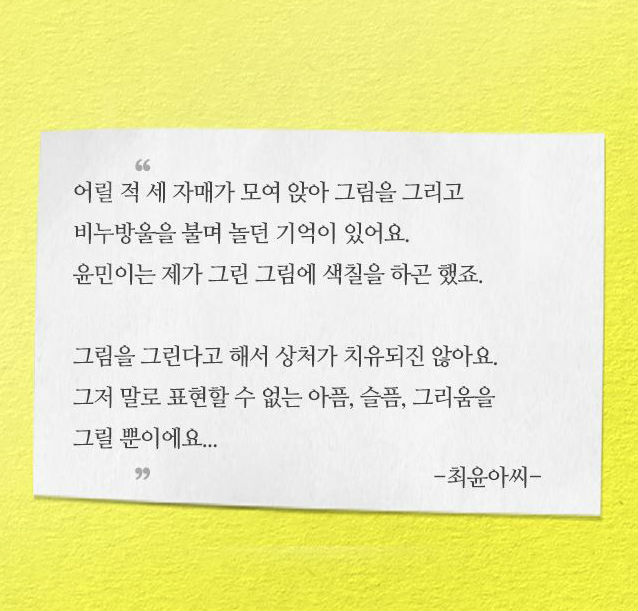 “
어릴 적 세 자매가 모여 앉아 그림을 그리고
비누방울을 불며 놀던 기억이 있어요.
윤민이는 제가 그린 그림에 색칠을 하곤 했죠.
그림을 그린다고 해서 상처가 치유되진 않아요.
그저 말로 표현할 수 없는 아픔, 슬픔, 그리움을
그릴 뿐이에요...
”
-최윤아씨-